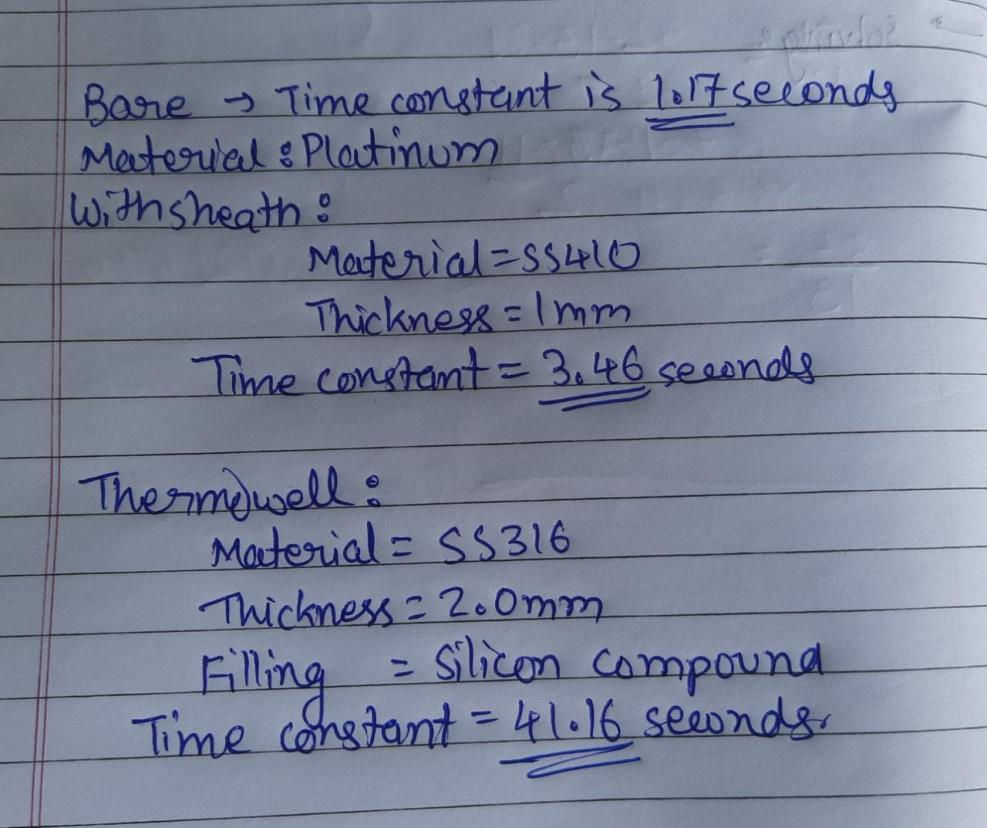 Bare → Time constant is 1.17 seconds
Material : Platinum
With sheath :
Material = SS410
Thickness = 1mm
Time constant = 3.46 seconds
Thermowell :
Material = SS316
Thickness = 2.0mm
Filling = Silicon compound
Time constant = 41.16 seconds.